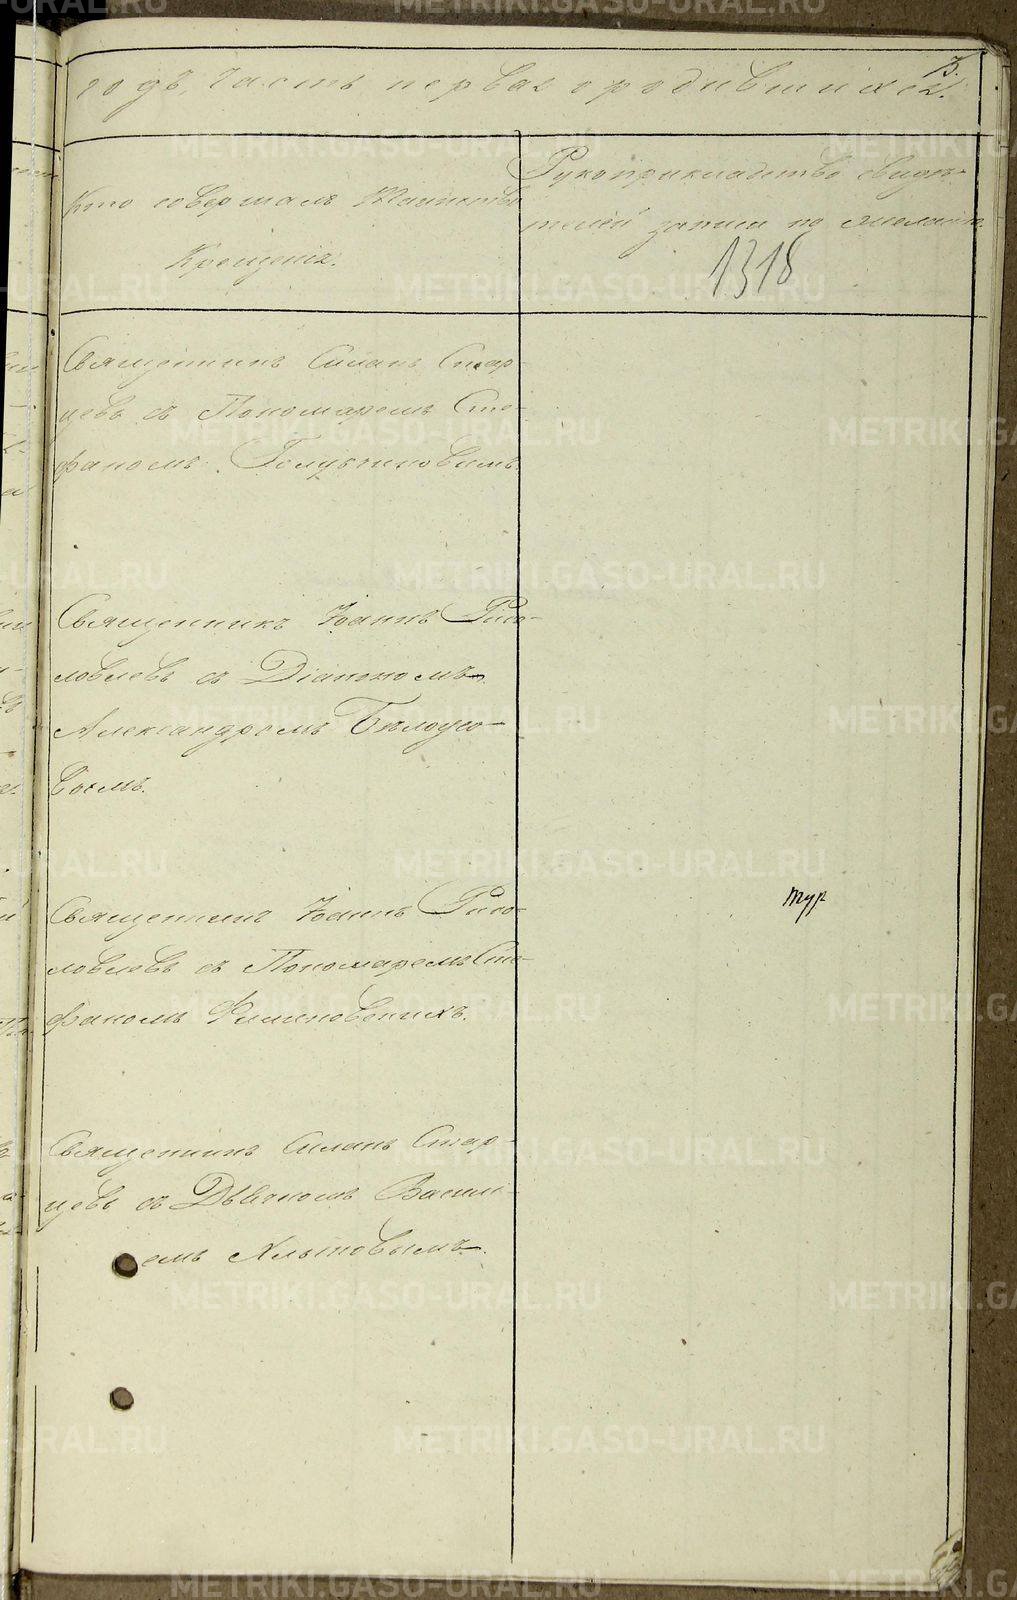 годъ, часть первая о родившихся.
Кто совершалъ таинство
Крещенія.
Рукоприкладство свидѣ-
телей записи по желанію.
1318
Священникъ Силанъ Стар-
цевъ съ Пономаремъ Сте-
фаномъ
Священникъ Іоаннъ
съ Діакономъ
Александромъ Бѣлоусо-
вымъ.
Священникъ Іоаннъ
съ Пономаремъ Сте-
фаномъ Филиповскихъ.
тур
Священникъ Силанъ Стар-
цевъ съ Дьякономъ Васили-
емъ Хлыновымъ.
METRIKI.GASO-URAL.RU